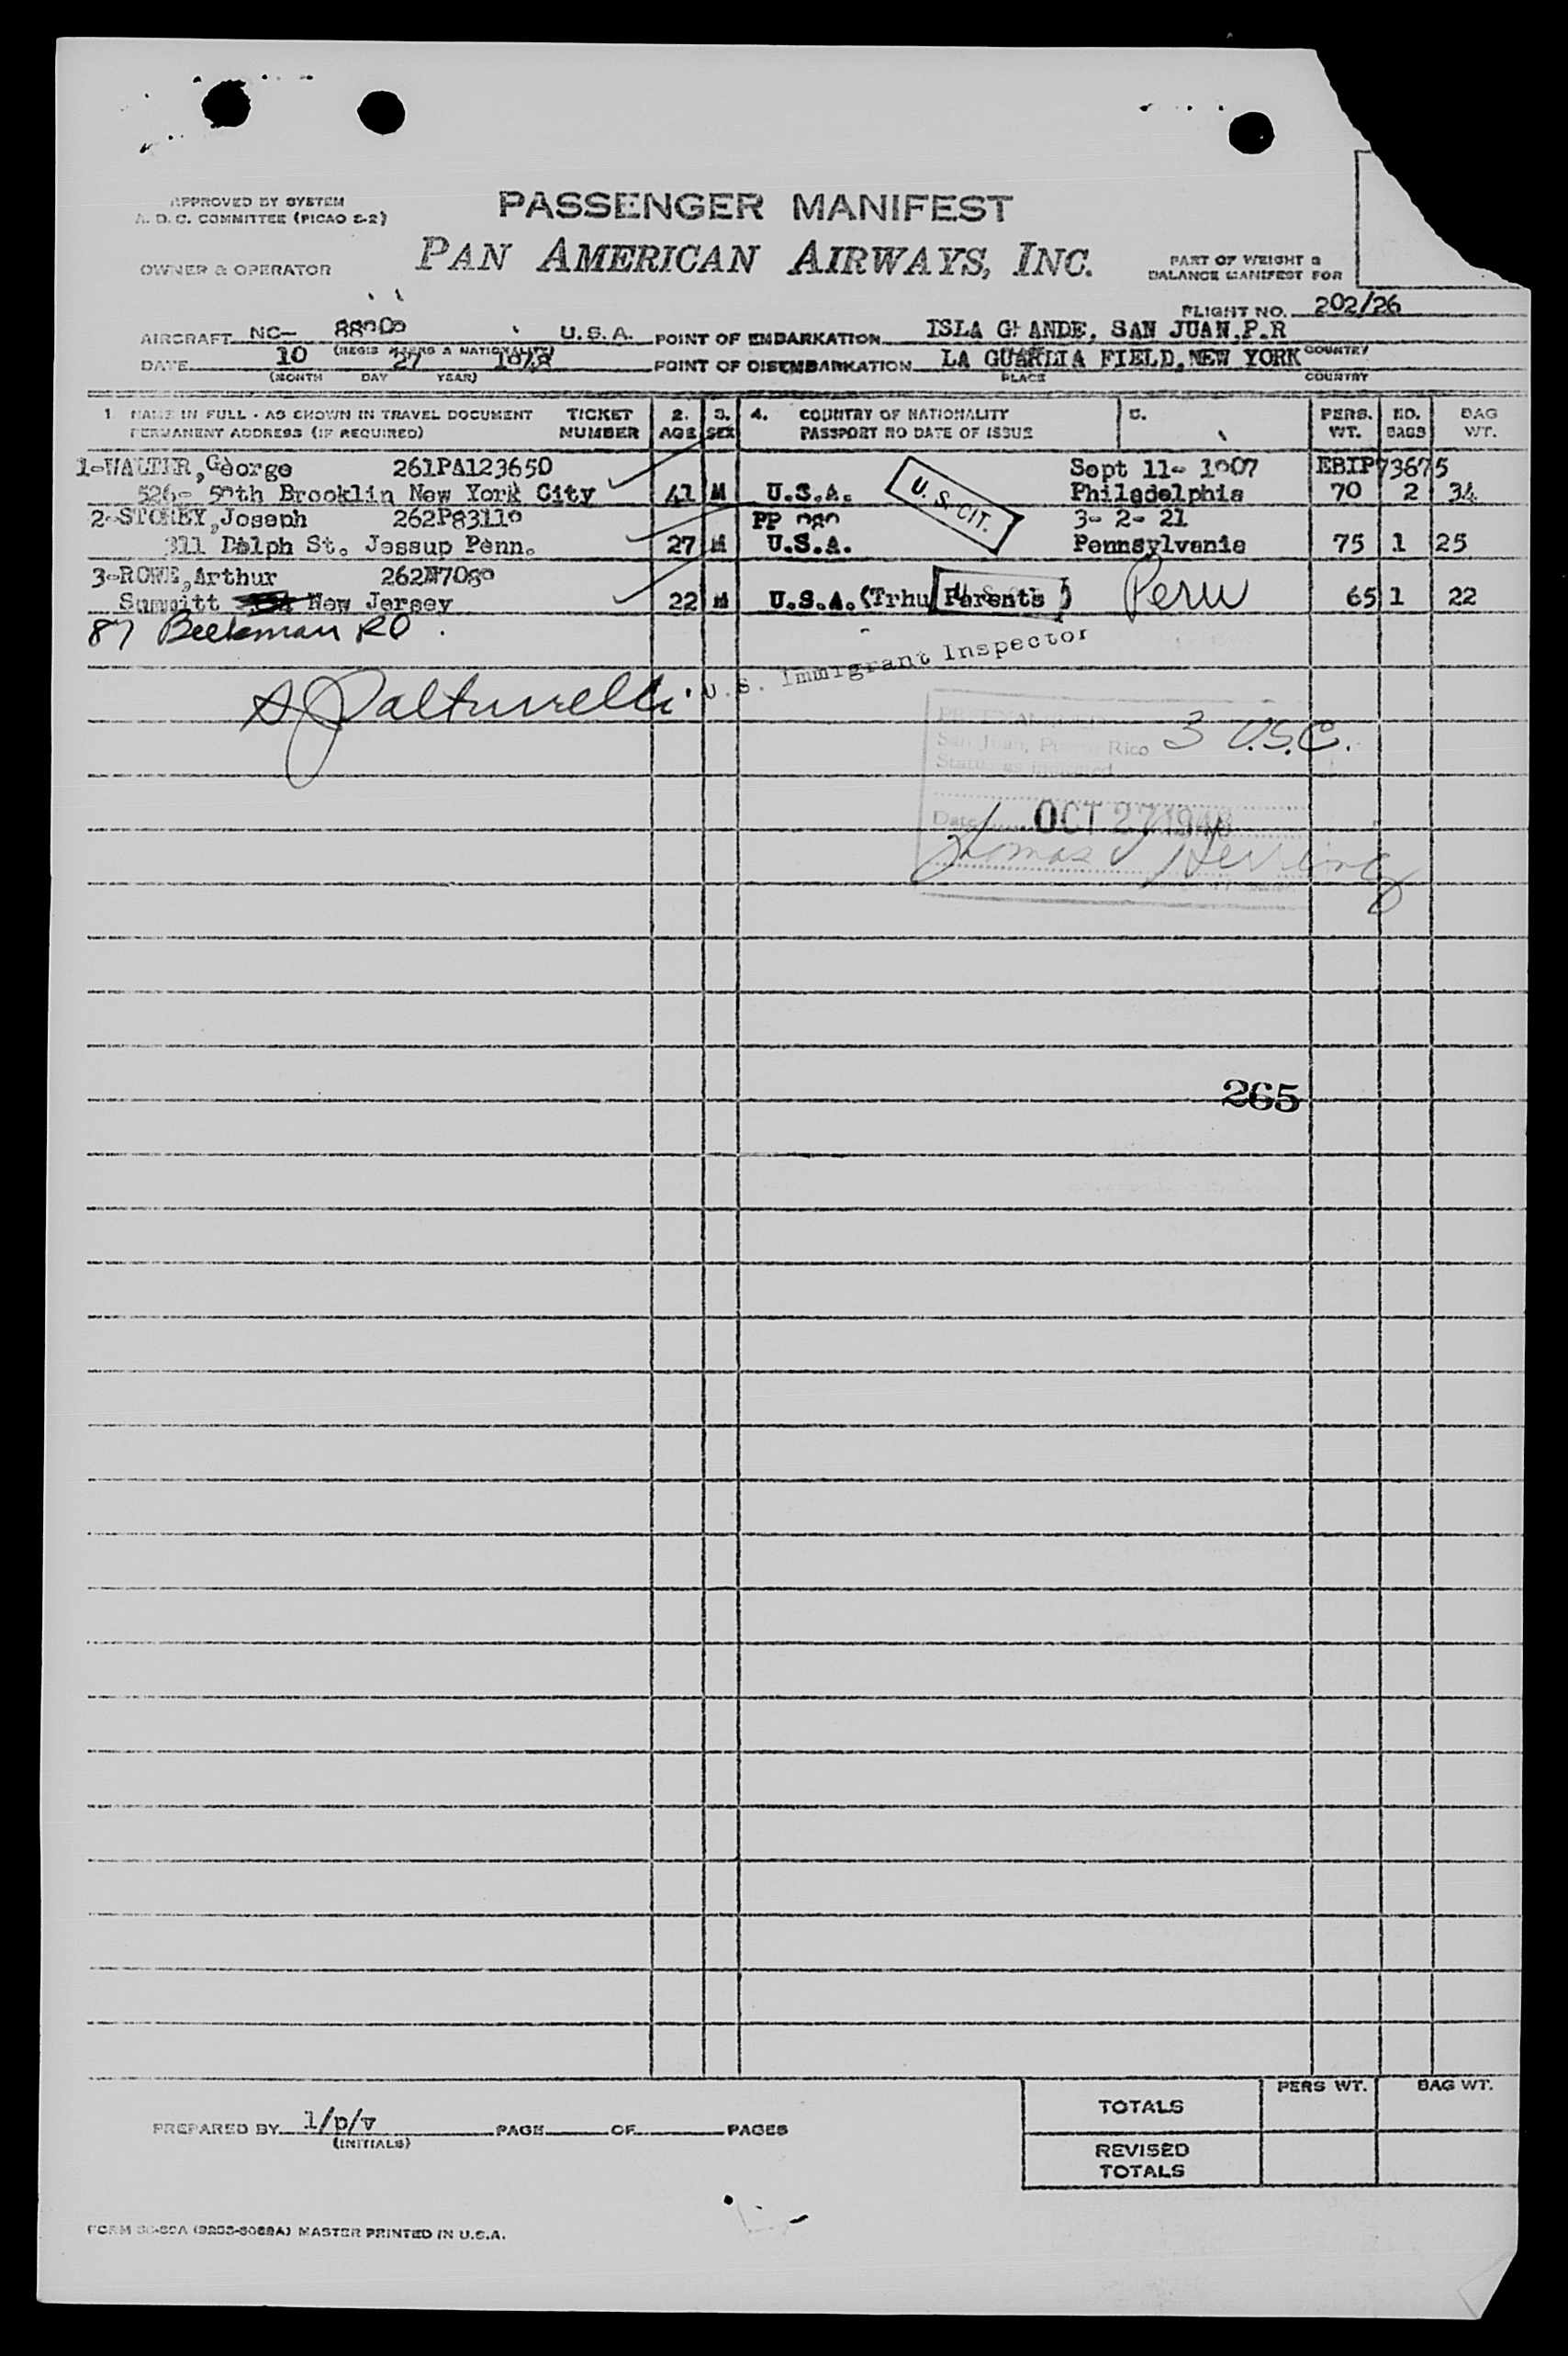 APPROVED BY SYSTEM
A. D. C. COMMITTEE (PICAO E-2)
PASSENGER MANIFEST
OWNER & OPERATOR
PAN AMERICAN AIRWAYS, INC.
PART OF WEIGHT &
BALANCE MANIFEST FOR
FLIGHT NO. 202/26
AIRCRAFT NC- U.S.A. POINT OF EMBARKATION ISLA GRANDE, SAN JUAN, P.R
(REGIS MARKS & NATIONALITY) COUNTRY
DATE 10 27 1948 POINT OF DISEMBARKATION LA GUARDIA FIELD, NEW YORK
(MONTH DAY YEAR) PLACE COUNTRY
1. NAME IN FULL - AS SHOWN IN TRAVEL DOCUMENT TICKET 2. 3. 4. COUNTRY OF NATIONALITY 5. PERS. NO. BAG
PERMANENT ADDRESS (IF REQUIRED) NUMBER AGE SEX PASSPORT NO DATE OF ISSUE WT. BAGS WT.
1-WALTER, George 261PA123650 Sept 11- 1907 EBIP73675
526- 59th Brooklin New York City 41 M U.S.A. U.S. CIT. Philadelphia 70 2 34
2-STOREY, Joseph 262P83119 PP 989 3- 2- 21
311 Dalph St. Jessup Penn. 27 M U.S.A. Pennsylvania 75 1 25
3-ROWE, Arthur
Summitt New Jersey 22 M U.S.A. (Trhu Parents) Peru 65 1 22
87 Beekman RD.
U.S. Immigrant Inspector
San Juan, Puerto Rico 3 U.S.C.
Status as indicated
Date OCT 27 1948
Thomas J Herring
265
PERS WT. BAG WT.
TOTALS
PREPARED BY 1/p/v PAGE OF PAGES
(INITIALS)
REVISED
TOTALS
MASTER PRINTED IN U.S.A.